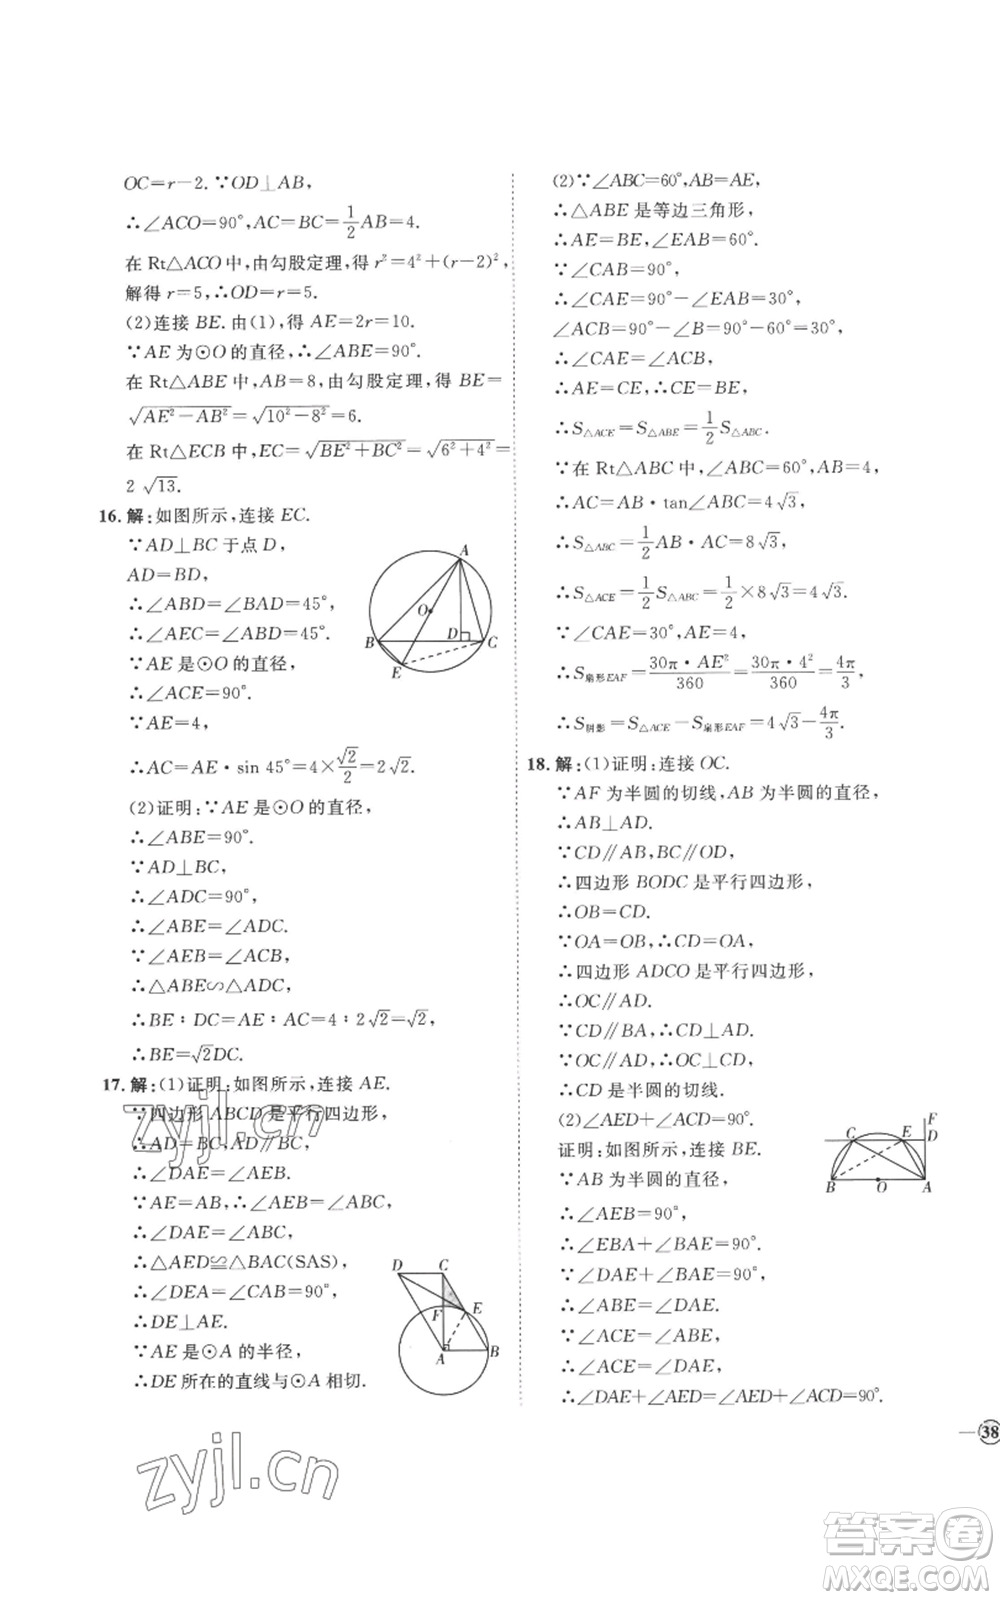 OC=r-2.∵OD⊥AB,
∴∠ACO=90°,AC=BC=1/2AB=4.
在 Rt△ACO 中,由勾股定理,得 r²=4²+(r-2)²,
解得 r=5,∴OD=r=5.
(2)连接 BE.由(1),得 AE=2r=10.
∵AE 为⊙O 的直径,∴∠ABE=90°.
在 Rt△ABE 中,AB=8,由勾股定理,得 BE=
√(AE²-AB²)=√(10²-8²)=6.
在 Rt△ECB 中,EC=√(BE²+BC²)=√(6²+4²)=
2√13.
16.解:如图所示,连接 EC.
∵AD⊥BC 于点 D,
AD=BD,
∴∠ABD=∠BAD=45°,
∴∠AEC=∠ABD=45°.
∵AE 是⊙O 的直径,
∴∠ACE=90°.
∵AE=4,
∴AC=AE·sin 45°=4×√2/2=2√2.
(2)证明:∵AE 是⊙O 的直径,
∴∠ABE=90°.
∵AD⊥BC,
∴∠ADC=90°,
∴∠ABE=∠ADC.
∵∠AEB=∠ACB,
∴△ABE∽△ADC,
∴BE∶DC=AE∶AC=4∶2√2=√2,
∴BE=√2DC.
A
O
B
D
C
E
17.解:(1)证明:如图所示,连接 AE.
∵四边形 ABCD 是平行四边形,
∴AD=BC,AD∥BC,
∴∠DAE=∠AEB.
∵AE=AB,∴∠AEB=∠ABC,
∴∠DAE=∠ABC,
∴△AED≌△BAC(SAS),
∴∠DEA=∠CAB=90°,
∴DE⊥AE.
∵AE 是⊙A 的半径,
∴DE 所在的直线与⊙A 相切.
D
C
F
E
A
B
(2)∵∠ABC=60°,AB=AE,
∴△ABE 是等边三角形,
∴AE=BE,∠EAB=60°.
∵∠CAB=90°,
∴∠CAE=90°-∠EAB=30°,
∠ACB=90°-∠B=90°-60°=30°,
∴∠CAE=∠ACB,
∴AE=CE,∴CE=BE,
∴S△ACE=S△ABE=1/2S△ABC.
∵在 Rt△ABC 中,∠ABC=60°,AB=4,
∴AC=AB·tan∠ABC=4√3,
∴S△ABC=1/2AB·AC=8√3,
∴S△ACE=1/2S△ABC=1/2×8√3=4√3.
∵∠CAE=30°,AE=4,
∴S扇形EAF=30π·AE²/360=30π·4²/360=4π/3,
∴S阴影=S△ACE-S扇形EAF=4√3-4π/3.
18.解:(1)证明:连接 OC.
∵AF 为半圆的切线,AB 为半圆的直径,
∴AB⊥AD.
∵CD∥AB,BC∥OD,
∴四边形 BODC 是平行四边形,
∴OB=CD.
∵OA=OB,∴CD=OA,
∴四边形 ADCO 是平行四边形,
∴OC∥AD.
∵CD∥BA,∴CD⊥AD.
∵OC∥AD,∴OC⊥CD,
∴CD 是半圆的切线.
(2)∠AED+∠ACD=90°.
证明:如图所示,连接 BE.
∵AB 为半圆的直径,
∴∠AEB=90°,
∴∠EBA+∠BAE=90°.
∵∠DAE+∠BAE=90°,
∴∠ABE=∠DAE.
∵∠ACE=∠ABE,
∴∠ACE=∠DAE,
∴∠DAE+∠AED=∠AED+∠ACD=90°.
F
C
E
D
B
O
A
38
zyjl.cn
zyjl.cn
答案卷
MXQE.COM